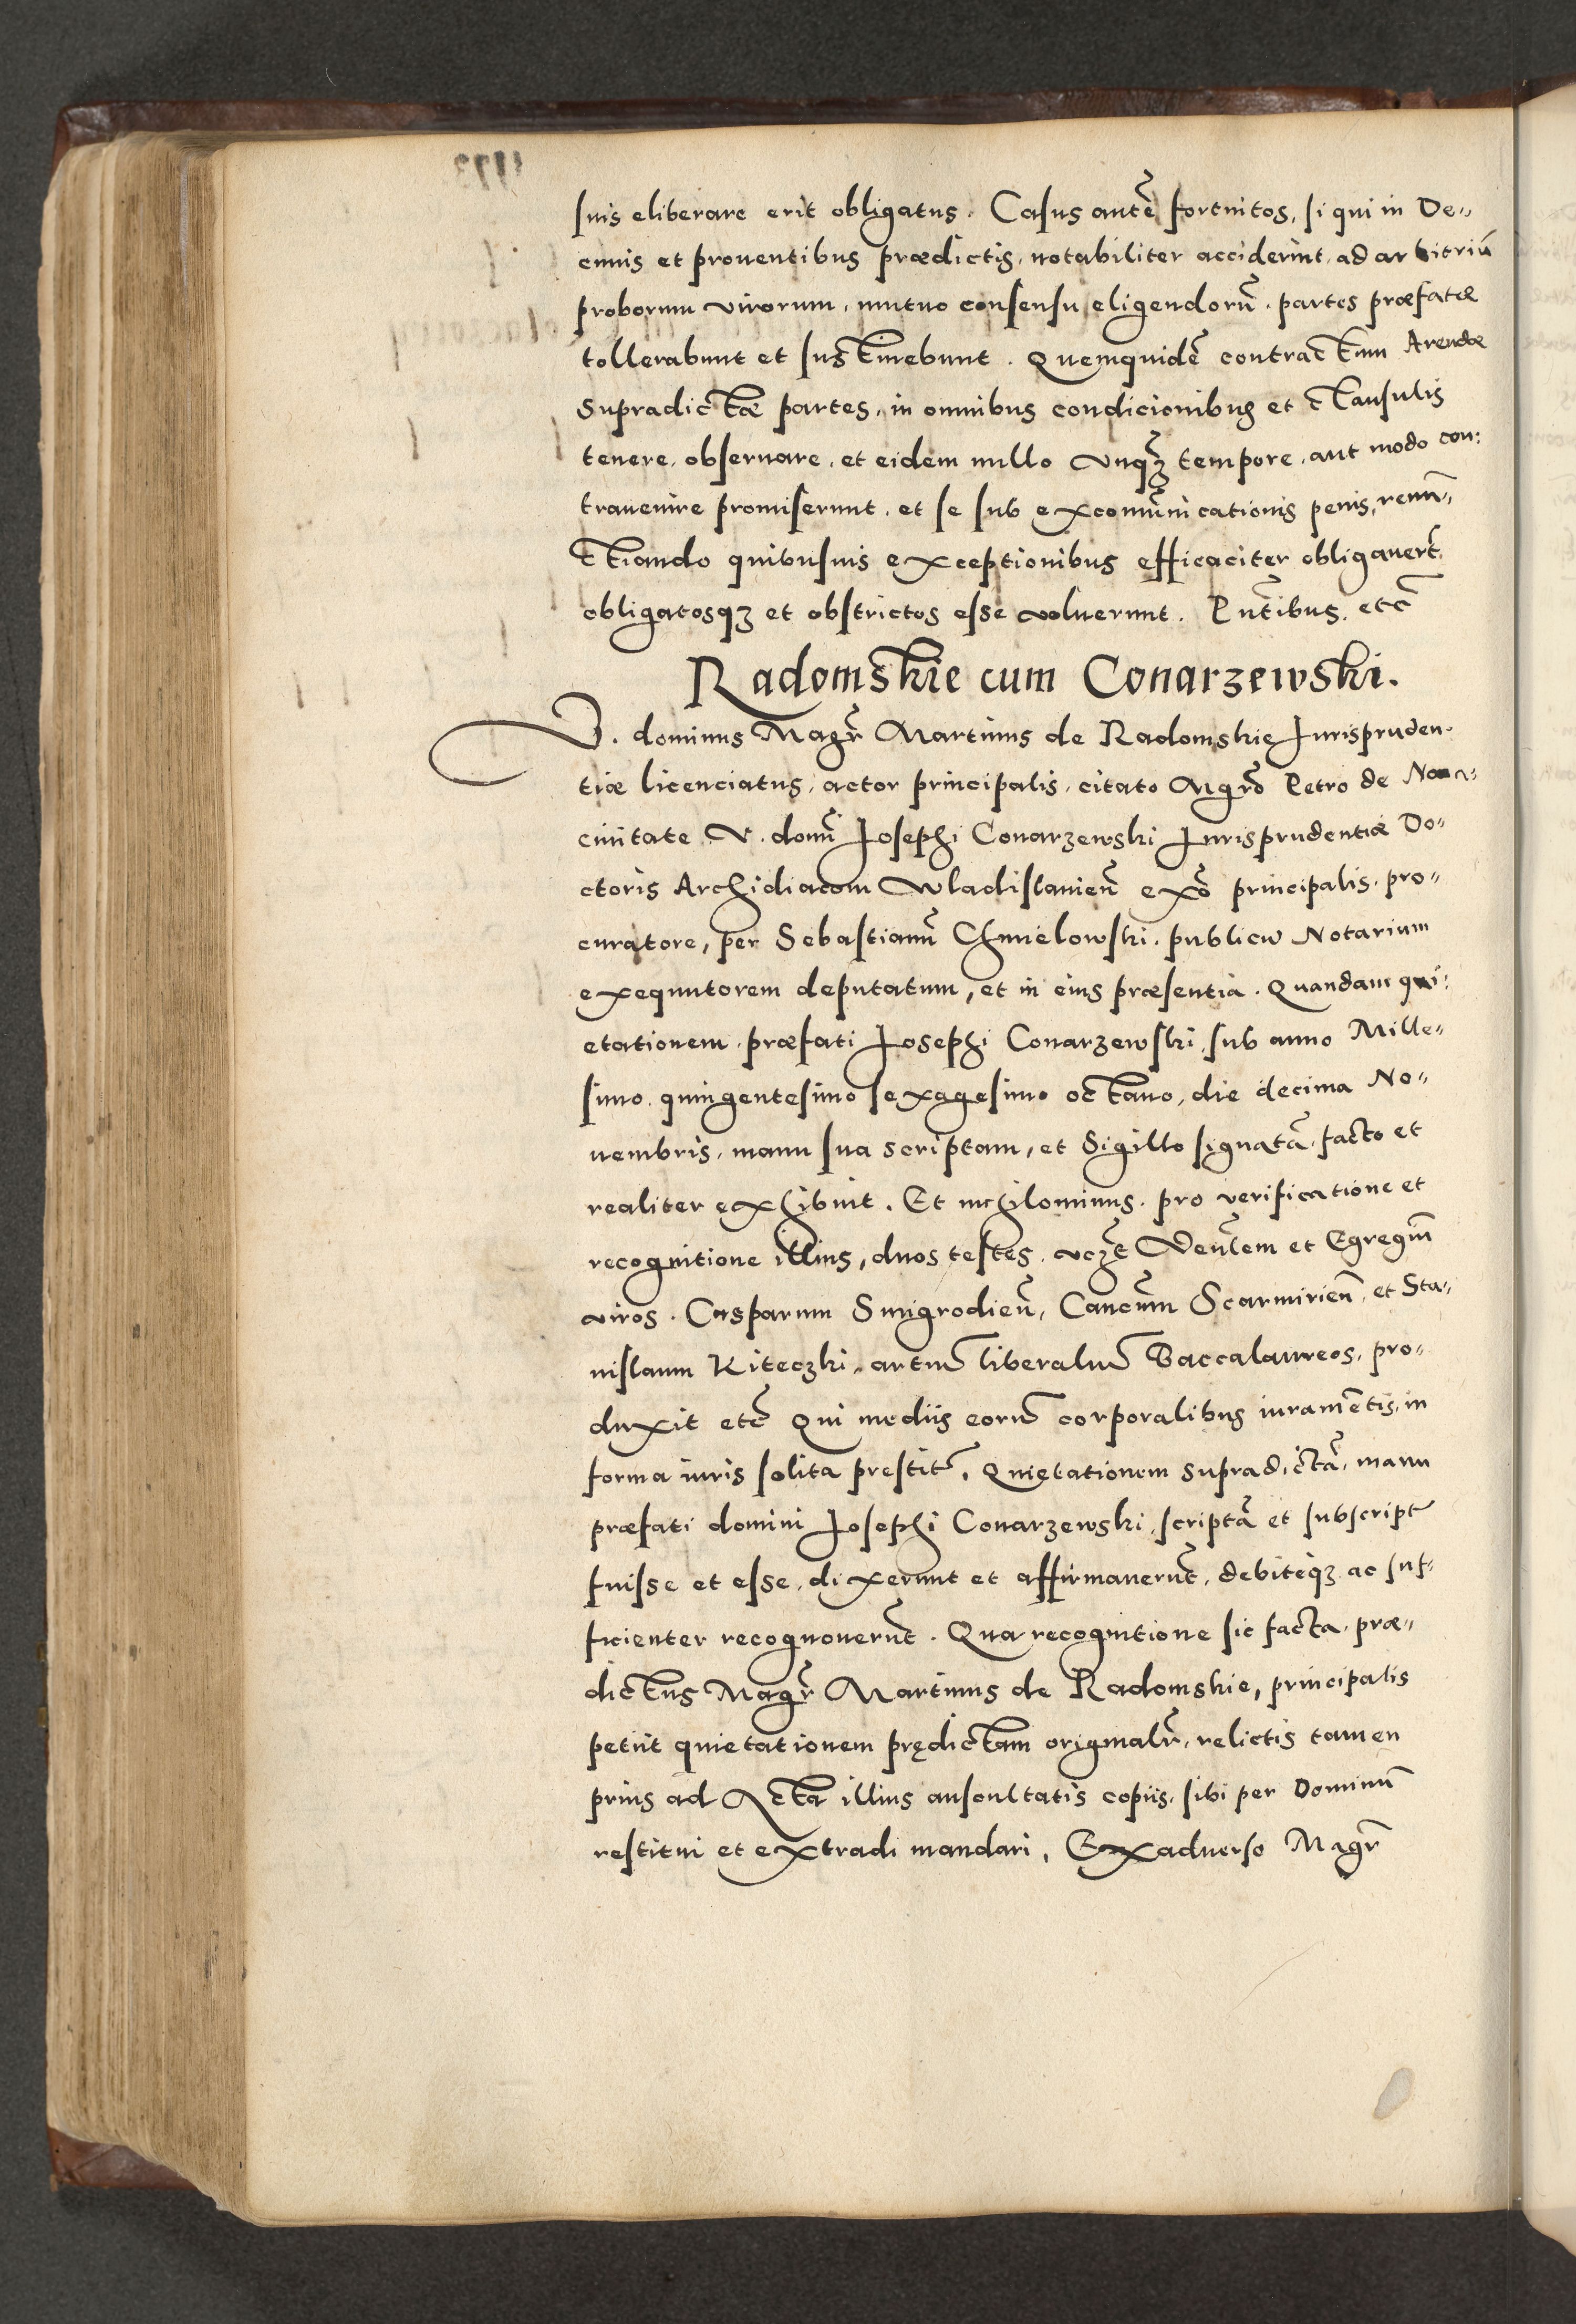 suis eliberare erit obligatus. Casus autē fortuitos, si qui in De„
cimis et prouentibus prædictis, notabiliter acciderint, ad arbitriū
proborum virorum, mutuo consensu eligendorū. partes præfatæ
tollerabunt et sustinebunt. Quemquidē contractum Arendæ
Supradictæ partes, in omnibus condicionibus et clausulis
tenere, obseruare, et eidem nullo vnqz tempore, aut modo con:
trauenire promiserunt, et se sub excomūnicationis penis, renū„
ctiando quibusuis exceptionibus efficaciter obligauert,
obligatosqz et obstrictos esse voluerunt. Pntibus, etc
Radomskie cum Conarzewski.
V. dominus Magr Martinus de Radomskie Jurispruden„
tiæ licenciatus, actor principalis, citato Mgro Petro de Noua„
ciuitate V. domi Josephi Conarzewski Jurisprudentiæ Do„
ctoris Archidiaconi Wladislauien exo principalis, pro„
curatore, per Sebastianū Chmielowski, publicū Notarium
exequutorem deputatum, et in eius præsentia. Quandam qui:
etationem, præfati Josephi Conarzewski, sub anno Mille„
simo, quingentesimo sexagesimo octauo, die decima No„
uembris, manu sua scriptam, et Sigillo signatā, facto et
realiter exhibuit. Et nihilominus, pro verificatione et
recognitione illius, duos testes, vczt Venlem et Egregiū
viros. Casparum Smigrodien, Cancum Scarmirien, et Sta„
nislaum Kiteczki, artiū liberaliū Baccalaureos, pro„
duxit etc Qui mediis eorū corporalibus iuramētis, in
forma iuris solita prestit, Quietationem supradictā, manu
præfati domini Josephi Conarzewski, scriptā et subscript
fuisse et esse, dixerunt et affirmauerūt, debiteqz ac suf„
ficienter recognouerūt. Qua recognitione sic facta, præ„
dictus Magr Martinus de Radomskie, principalis
petiit quietationem prędictam originalr, relictis tamen
prius ad Acta illius auscultatis copiis, sibi per Dominū
restitui et extradi mandari, Exaduerso Magr